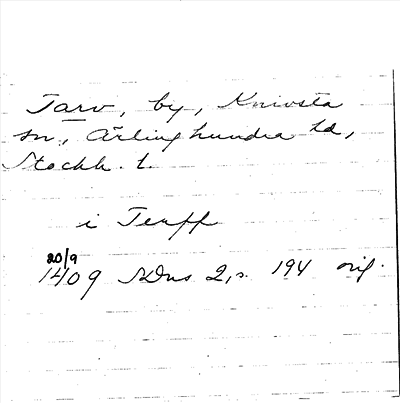 Tarv, by, Knivsta
sn, Ärlinghundra hd,
Stockh. l.
i Terff
20/9
1409 SDns 2, s. 194 orig.